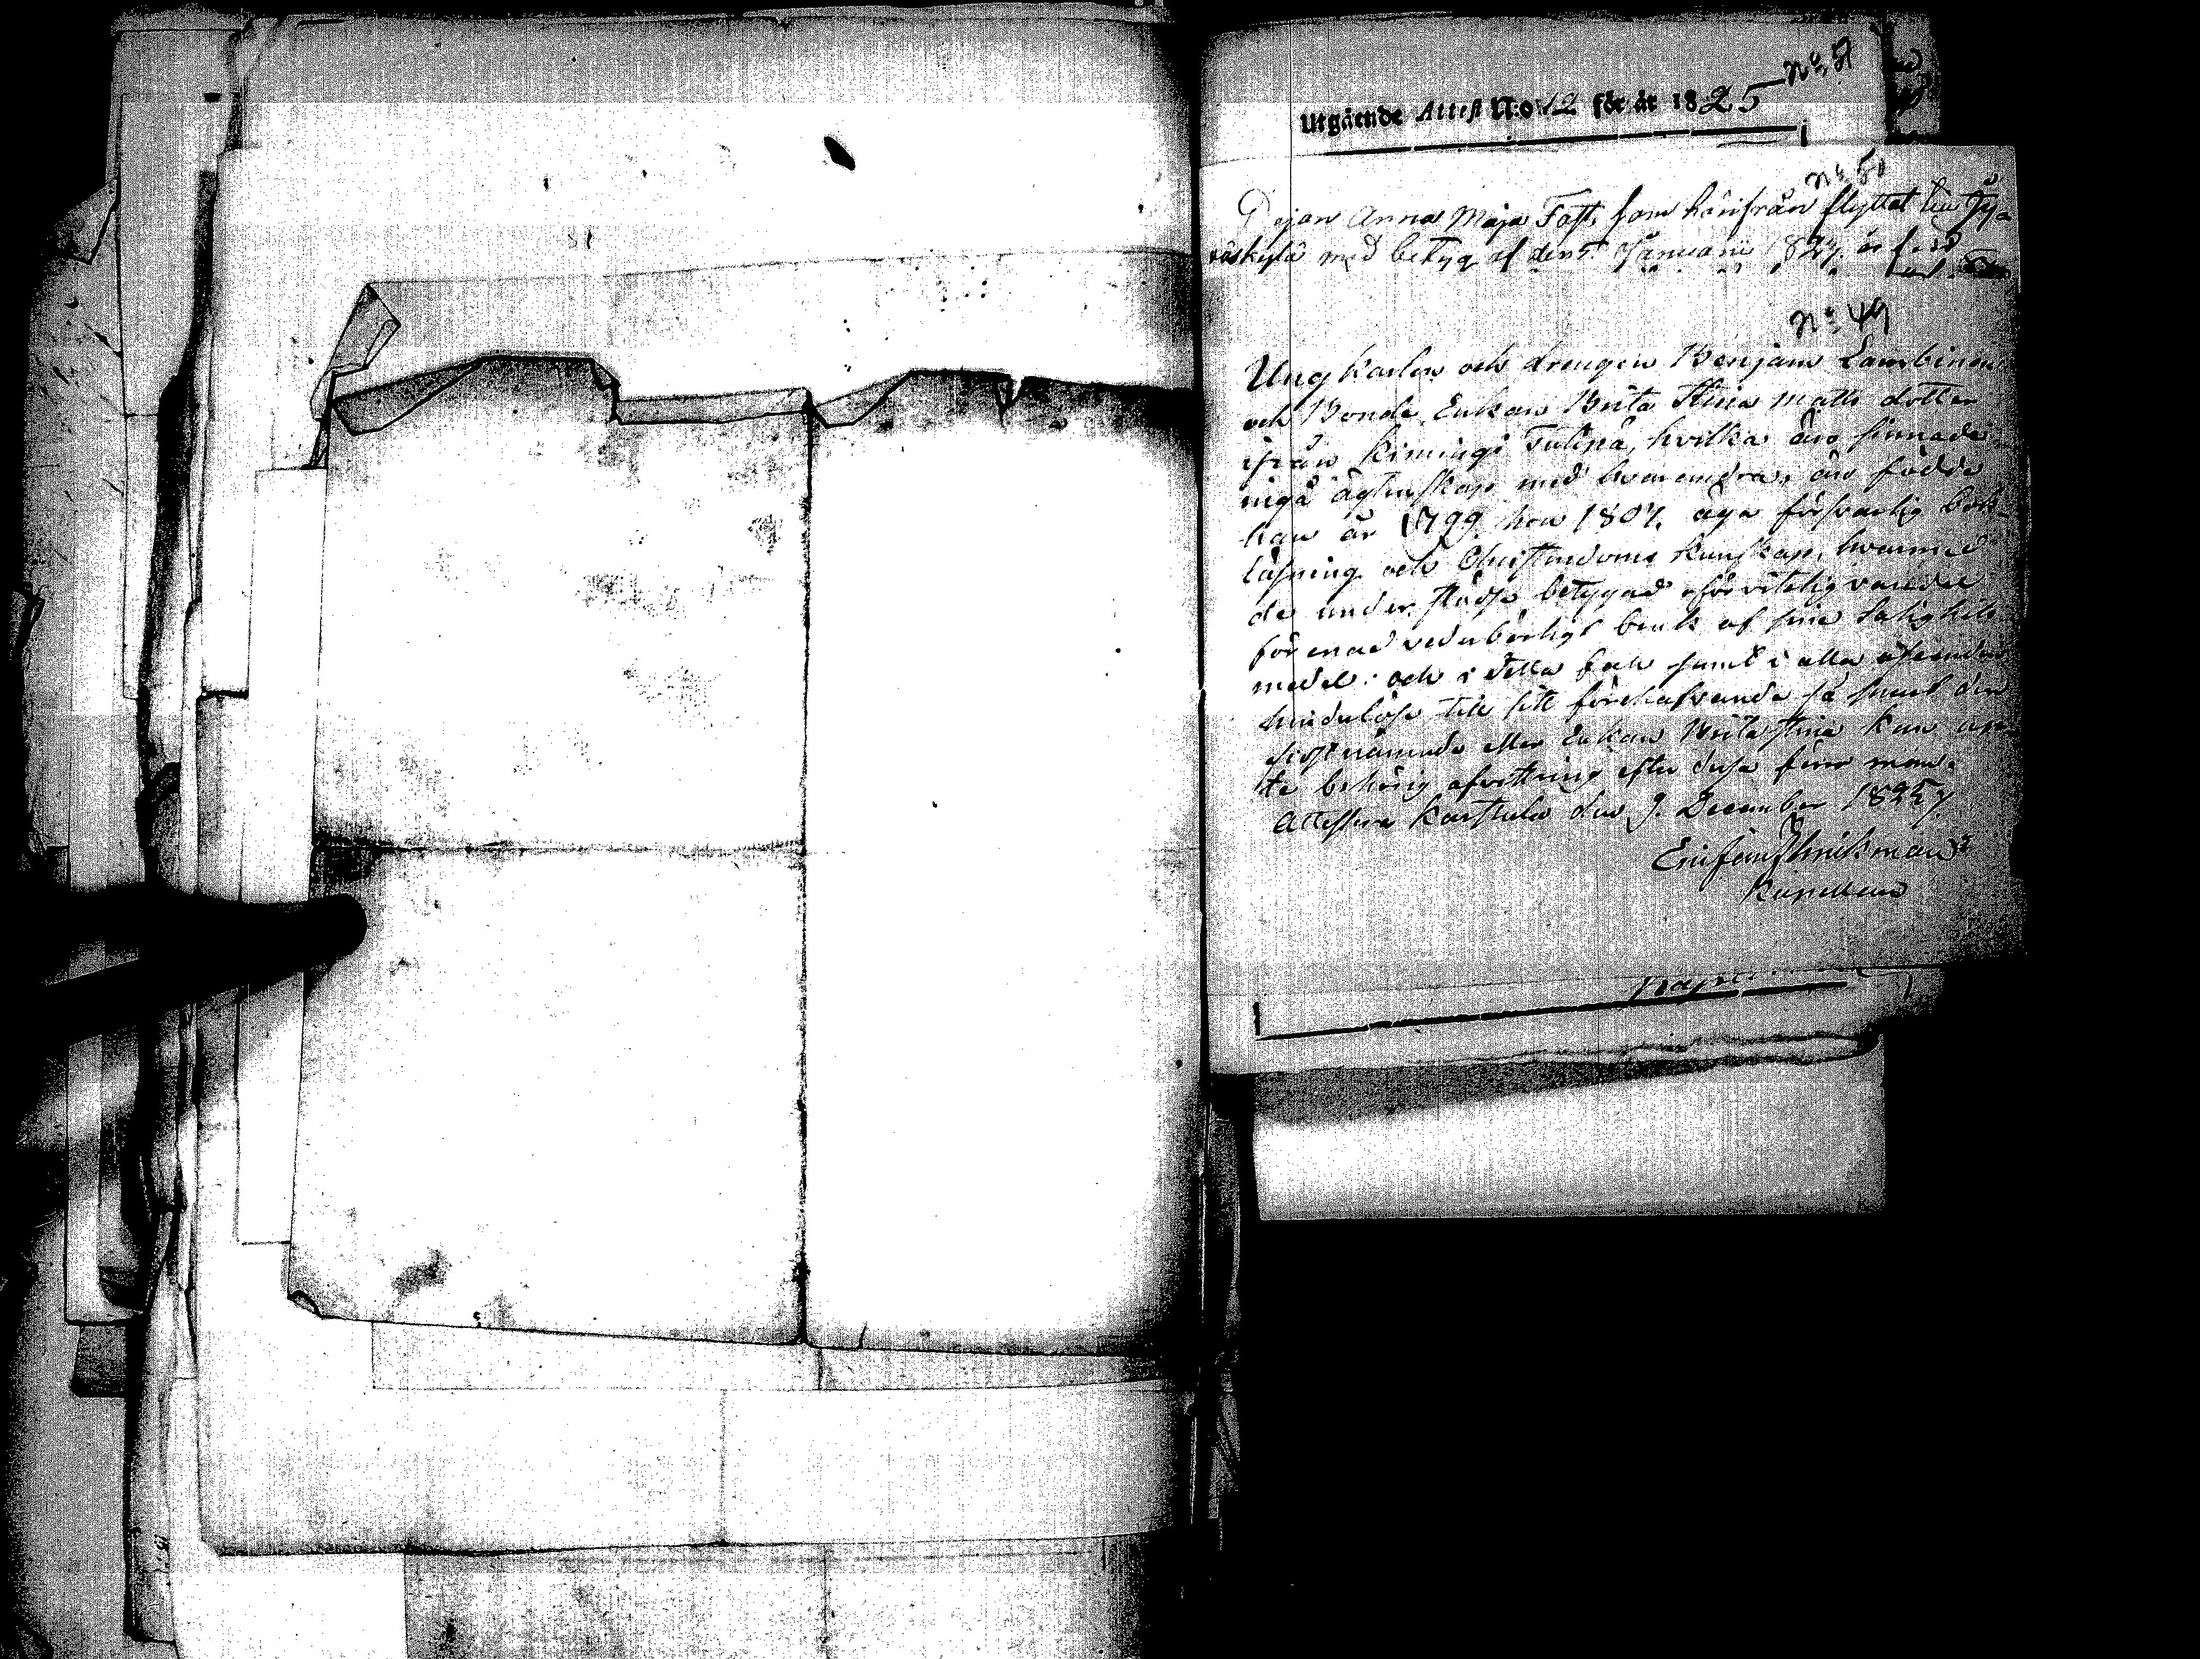 No 51
Utgående Attest N:o 12 för år 1825
No 50
Pigan Anna Maja Fast, som härifrån flyttat till Jy-
väskylä med betyg af den 5 Januarii 1824 är född
No 49
Ungkarlen och drengen Benjam Lambinen
och Bonde Enkan Brita Stina Matts dotter
ifrån Kimingi Tulpa, hvilka äro sinnade
ingå ägtenskap med hvarandra, äro födde
han år 1799 hon 1807. äga försvarlig bok-
läsning och Christendoms kunskap, hvarmed
de under städse betygad oförvitelig vandel
förenad vederbörligt bruk af sine salighets
medel: och i detta fall samt i alla afseenden
hinderlöse till sitt förehafvande så snart den
sistnämnde eller Enkan Brita Stina kan
te behörig afvittring efter dess förra man.
Attestera Karstula den 9. December 1825
Kapellan
Kapel